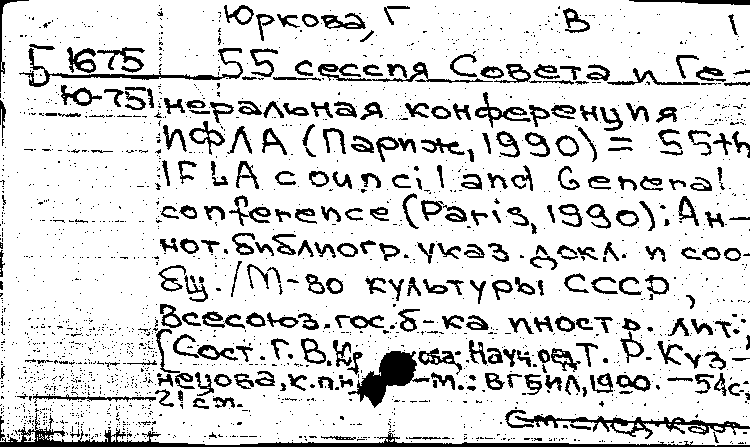 Юркова, Г В 1
Б 1675 55 сессия Совета и Ге-
Ю-751 неральная конференция
ИФЛА (Париж, 1990) = 55th
IFLA council and General
conference (Paris, 1990): Ан-
нот. библиогр. указ. докл. и соо-
бщ. / М-во культуры СССР,
Всесоюз. гос. б-ка иностр. лит.;
[Сост. Г. В. Юр кова; Науч. ред. Т. Р. Куз-
нецова, к.п.н -М.: ВГБИЛ, 1990. — 54с;
21 см.
См. след. карт.